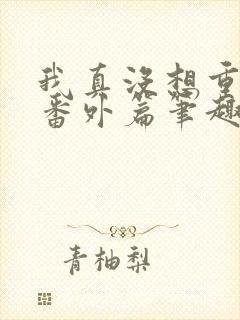 我真没想重
番外篇笔趣
青柚梨